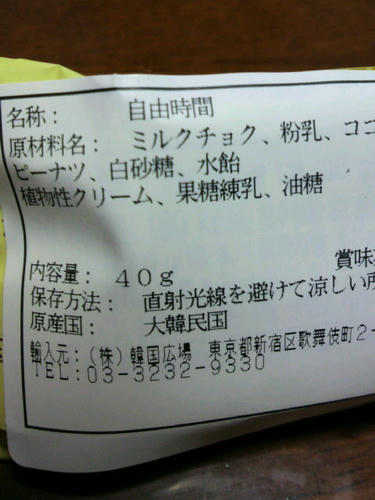 名称： 自由時間
原材料名： ミルクチョク、粉乳、ココ
ピーナツ、白砂糖、水飴
植物性クリーム、果糖練乳、油糖
賞味
内容量： 40g
保存方法： 直射光線を避けて涼しい所
原産国： 大韓民国
輸入元：（株）韓国広場 東京都新宿区歌舞伎町2-
TEL：03-3232-9330